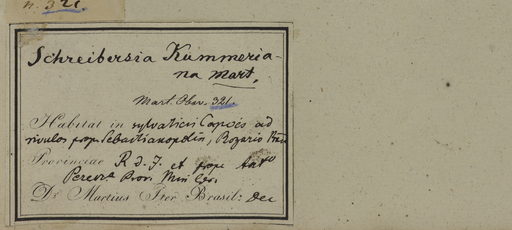 n. 321.
Schreibersia Kummeria-
na Mart.
Mart. Obsv. 321.
Habitat in sylvaticis Capões ad
rivulos prope Sebastianopolin, Rozario
Provinciae R d. J. et prope
Prov. Min
Dr. Martius Iter Brasil: Dec